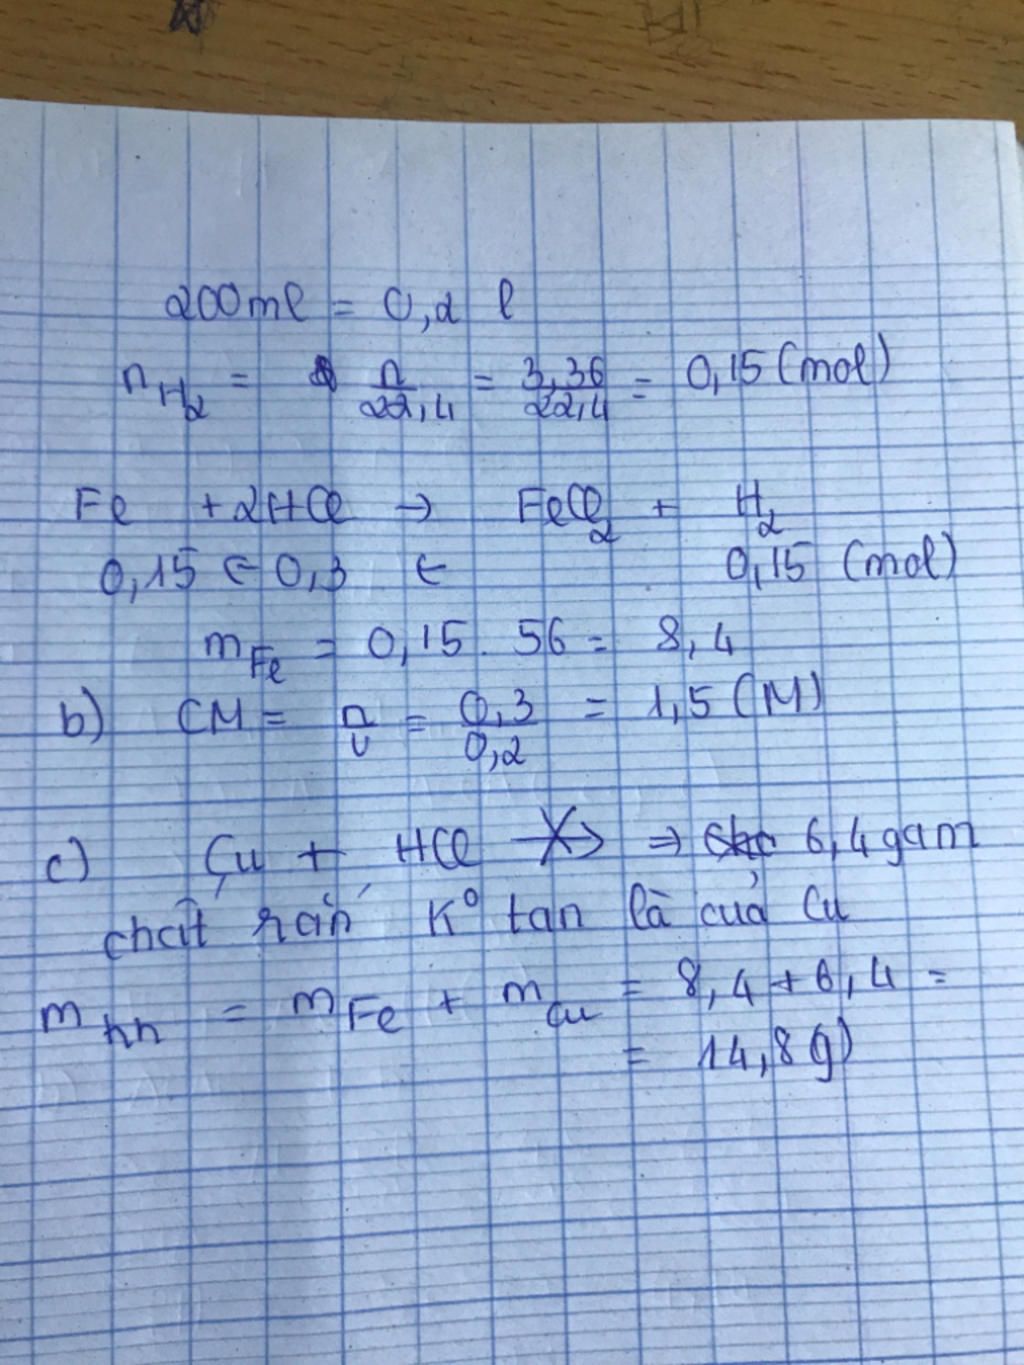 200ml = 0,2 l
n H₂ = n/22,4 = 3,36/22,4 = 0,15 (mol)
Fe + 2HCl → FeCl₂ + H₂
0,15 ← 0,3 ← 0,15 (mol)
m Fe = 0,15 . 56 = 8,4
b) CM = n/v = 0,3/0,2 = 1,5 (M)
c) Cu + HCl -X-> ⇒ 6,4 gam
chất rắn K° tan là của Cu
m hh = m Fe + m Cu = 8,4 + 6,4 =
= 14,8 g)